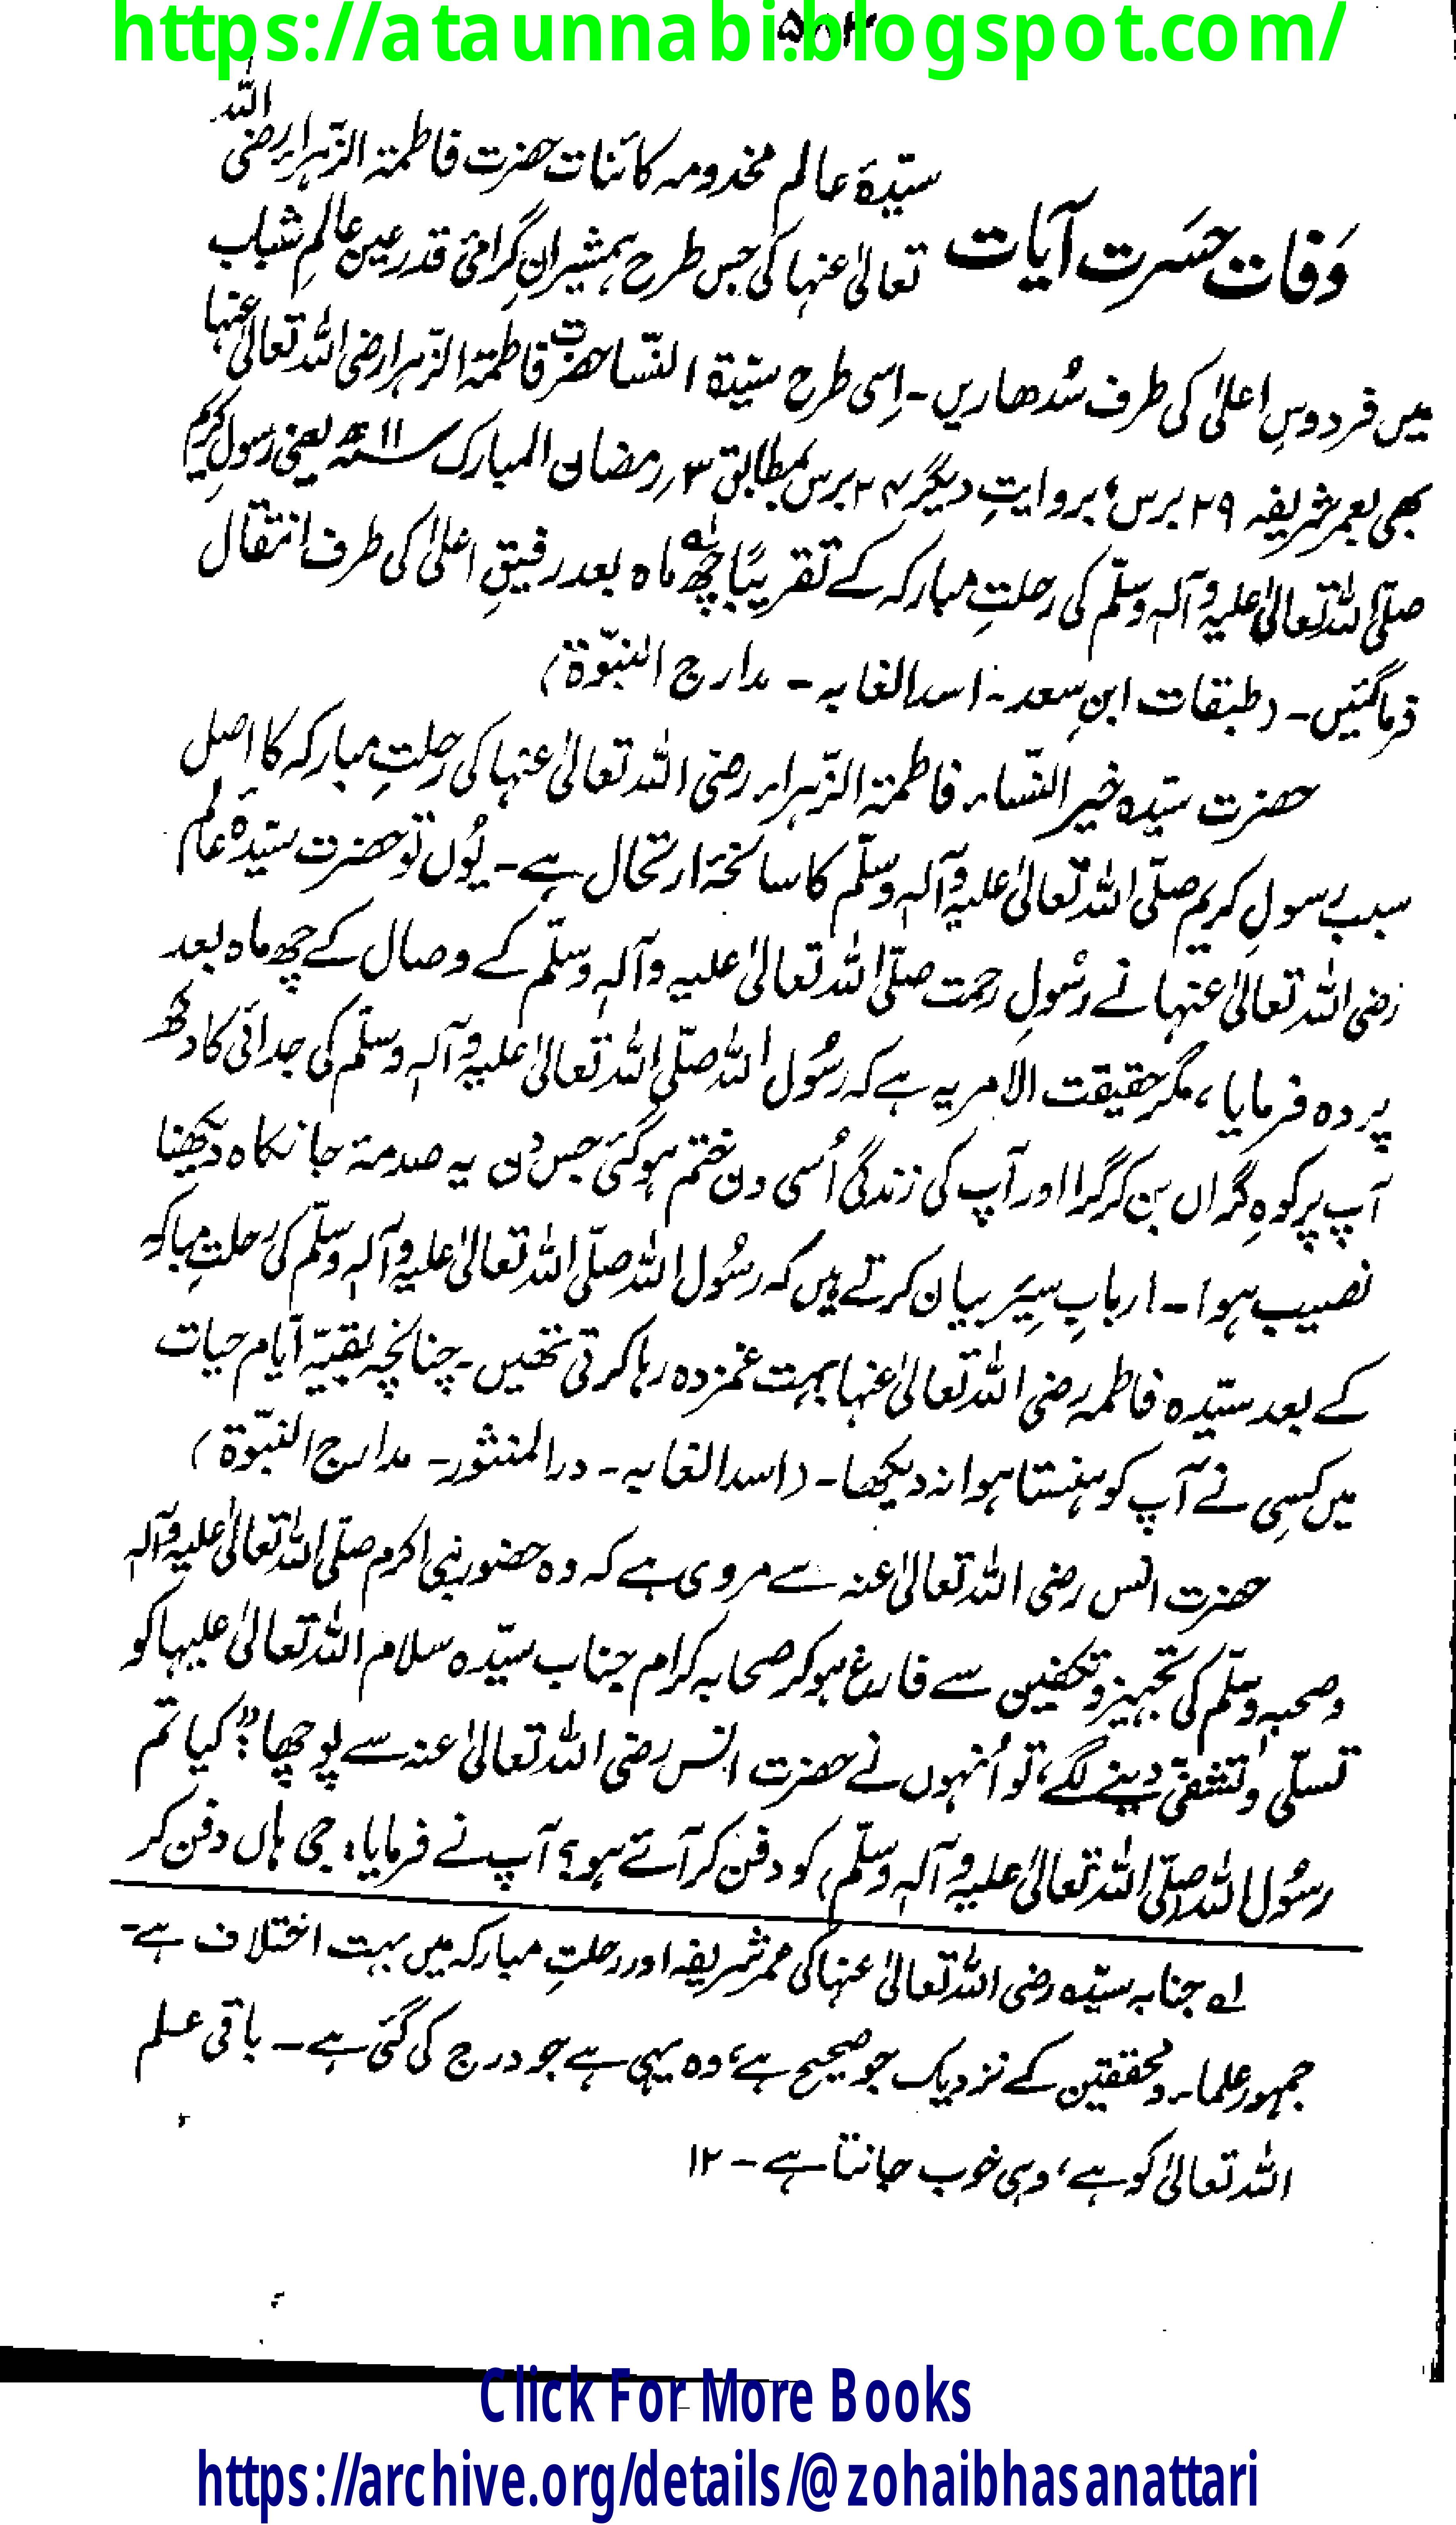 https://ataunnabi.blogspot.com/
وَفات حسَرت آیات
سیّدۂ عالم مخدومہ کائنات حضرت فاطمۃ الزّہراء رضی اللہ
تعالیٰ عنہا کی جس طرح ہمشیرانِ گرامیٔ قدر عین عالمِ شباب
میں فردوسِ اعلیٰ کی طرف سُدھاریں۔ اِسی طرح سیّدۃ النّسا حضرت فاطمۃ الزّہرا رضی اللہ تعالیٰ عنہا
بھی بعمر شریفہ ۲۹ برس، بروایتِ دیگر ۲۴ برس بمطابق ۳ رمضان المبارک ۱۱ھ یعنی رسولِ کریم
صلّی اللہ تعالیٰ علیہ وآلہٖ وسلّم کی رحلتِ مبارکہ کے تقریباً چھ لہ ماہ بعد رفیقِ اعلیٰ کی طرف انتقال
فرما گئیں۔ (طبقات ابنِ سعد۔ اسد الغابہ۔ مدارج النبوّۃ)
حضرت سیّدہ خیر النّساء فاطمۃ الزّہراء رضی اللہ تعالیٰ عنہا کی رحلتِ مبارکہ کا اصل
سبب رسولِ کریم صلّی اللہ تعالیٰ علیہ وآلہٖ وسلّم کا سانحۂ ارتحال ہے۔ یُوں تو حضرت سیّدۂ عالم
رضی اللہ تعالیٰ عنہا نے رسُولِ رحمت صلّی اللہ تعالیٰ علیہ وآلہٖ وسلّم کے وصال کے چھ ماہ بعد
پردہ فرمایا، مگر حقیقت الامر یہ ہے کہ رسُول اللہ صلّی اللہ تعالیٰ علیہ وآلہٖ وسلّم کی جدائی کا دکھ
آپ پر کوہِ گراں بن کر گرا اور آپ کی زندگی اُسی دن ختم ہو گئی جس دن یہ صدمۂ جانکاہ دیکھنا
نصیب ہوا۔ اربابِ سِیَر بیان کرتے ہیں کہ رسُول اللہ صلّی اللہ تعالیٰ علیہ وآلہٖ وسلّم کی رحلتِ مبارکہ
کے بعد سیّدہ فاطمہ رضی اللہ تعالیٰ عنہا بہت غمزدہ رہا کرتی تھیں۔ چنانچہ بقیّہ ایّام حیات
میں کسِی نے آپ کو ہنستا ہوا نہ دیکھا۔ (اسد الغابہ۔ در المنثور۔ مدارج النبّوۃ)
حضرت انس رضی اللہ تعالیٰ عنہ سے مروی ہے کہ وہ حضور نبی اکرم صلّی اللہ تعالیٰ علیہ وآلہٖ
وصحبہٖ وسلّم کی تجہیز و تکفین سے فارغ ہو کر صحابہ کرام جناب سیّدہ سلام اللہ تعالیٰ علیہا کو
تسلّی و تشفّی دینے لگے، تو اُنہوں نے حضرت انس رضی اللہ تعالیٰ عنہ سے پوچھا: "کیا تم
رسُول اللہ (صلّی اللہ تعالیٰ علیہ وآلہٖ وسلّم) کو دفن کر آئے ہو؟ آپ نے فرمایا: جی ہاں دفن کر
لہ جنابہ سیّدہ رضی اللہ تعالیٰ عنہا کی عمر شریفہ اور رحلتِ مبارکہ میں بہت اختلاف ہے۔
جمہور علماء و محققین کے نزدیک جو صحیح ہے، وہ یہی ہے جو درج کی گئی ہے۔ باقی علم
اللہ تعالیٰ کو ہے، وہی خوب جانتا ہے۔ ۱۲
Click For More Books
https://archive.org/details/@zohaibhasanattari